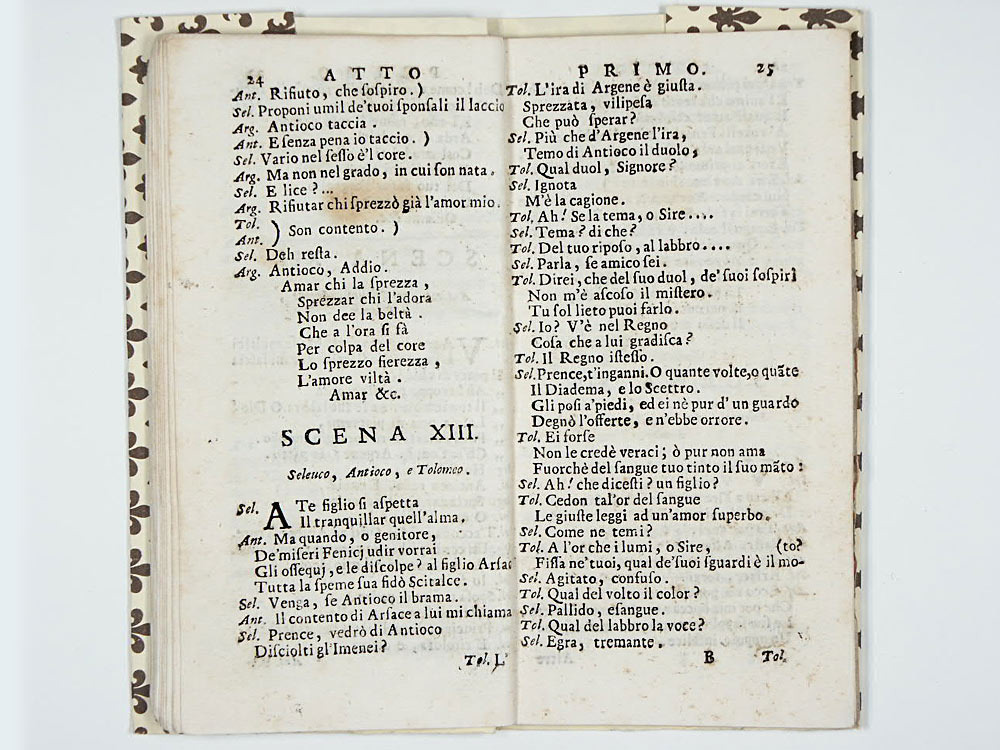 24 ATTO
Ant. Rifiuto, che ſoſpiro. )
Sel. Proponi umil de'tuoi ſponſali il laccio
Arg. Antioco taccia.
Ant. E ſenza pena io taccio. )
Sel. Vario nel ſeſſo è'l core.
Arg. Ma non nel grado, in cui ſon nata.
Sel. E lice?...
Arg. Rifiutar chi ſprezzò già l'amor mio.
Tol.
Ant. ) Son contento. )
Sel. Deh reſta.
Arg. Antioco, Addio.
Amar chi la ſprezza,
Sprezzar chi l'adora
Non dee la beltà.
Che a l'ora ſi fà
Per colpa del core
Lo ſprezzo fierezza,
L'amore viltà.
Amar &c.
SCENA XIII.
Seleuco, Antioco, e Tolomeo.
Sel. A Te figlio ſi aſpetta
Il tranquillar quell'alma.
Ant. Ma quando, o genitore,
De'miſeri Fenicj udir vorrai
Gli oſſequj, e le diſcolpe? al figlio Arſac
Tutta la ſpeme ſua fidò Scitalce.
Sel. Venga, ſe Antioco il brama.
Ant. Il contento di Arſace a lui mi chiama
Sel. Prence, vedrò di Antioco
Diſciolti gl'Imenei?
Tol. L'
PRIMO. 25
Tol. L'ira di Argene è giuſta.
Sprezzata, vilipeſa
Che può ſperar?
Sel. Più che d'Argene l'ira,
Temo di Antioco il duolo,
Tol. Qual duol, Signore?
Sel. Ignota
M'è la cagione.
Tol. Ah! Se la tema, o Sire....
Sel. Tema? di che?
Tol. Del tuo ripoſo, al labbro....
Sel. Parla, ſe amico ſei.
Tol. Direi, che del ſuo duol, de' ſuoi ſoſpiri
Non m'è aſcoſo il miſtero.
Tu ſol lieto puoi farlo.
Sel. Io? V'è nel Regno
Coſa che a lui gradiſca?
Tol. Il Regno iſteſſo.
Sel. Prence, t'inganni. O quante volte, o quãte
Il Diadema, e lo Scettro.
Gli poſi a'piedi, ed ei nè pur d'un guardo
Degnò l'offerte, e n'ebbe orrore.
Tol. Ei forſe
Non le credè veraci; ò pur non ama
Fuorchè del ſangue tuo tinto il ſuo mãto:
Sel. Ah! che diceſti? un figlio?
Tol. Cedon tal'or del ſangue
Le giuſte leggi ad un'amor ſuperbo.
Sel. Come ne temi?
Tol. A l'or che i lumi, o Sire, (to?
Fiſſa ne'tuoi, qual de'ſuoi ſguardi è il mo-
Sel. Agitato, confuſo.
Tol. Qual del volto il color?
Sel. Pallido, eſangue.
Tol. Qual del labbro la voce?
Sel. Egra, tremante.
B Tol.